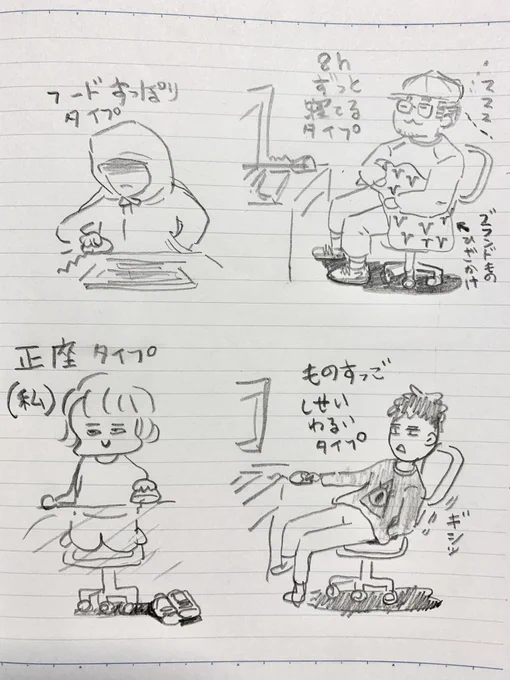 フードすっぽり
タイプ
8h
ずっと
寝てる
タイプ
ススス
ブランドもの
ひざかけ
正座タイプ
(私)
ものすっご
しせい
わるい
タイプ
ギシッ